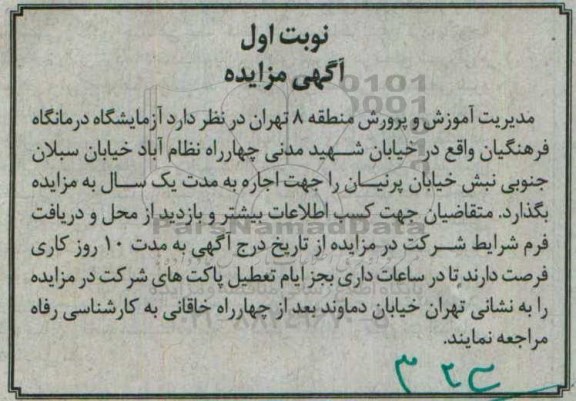 نوبت اول
آگهی مزایده
مدیریت آموزش و پرورش منطقه ۸ تهران در نظر دارد آزمایشگاه درمانگاه
فرهنگیان واقع در خیابان شهید مدنی چهارراه نظام آباد خیابان سبلان
جنوبی نبش خیابان پرنیان را جهت اجاره به مدت یک سال به مزایده
بگذارد. متقاضیان جهت کسب اطلاعات بیشتر و بازدید از محل و دریافت
ParsNamadData
فرم شرایط شرکت در مزایده از تاریخ درج آگهی به مدت ۱۰ روز کاری
فرصت دارند تا در ساعات داری بجز ایام تعطیل پاکت های شرکت در مزایده
را به نشانی تهران خیابان دماوند بعد از چهارراه خاقانی به کارشناسی رفاه
مراجعه نمایند.